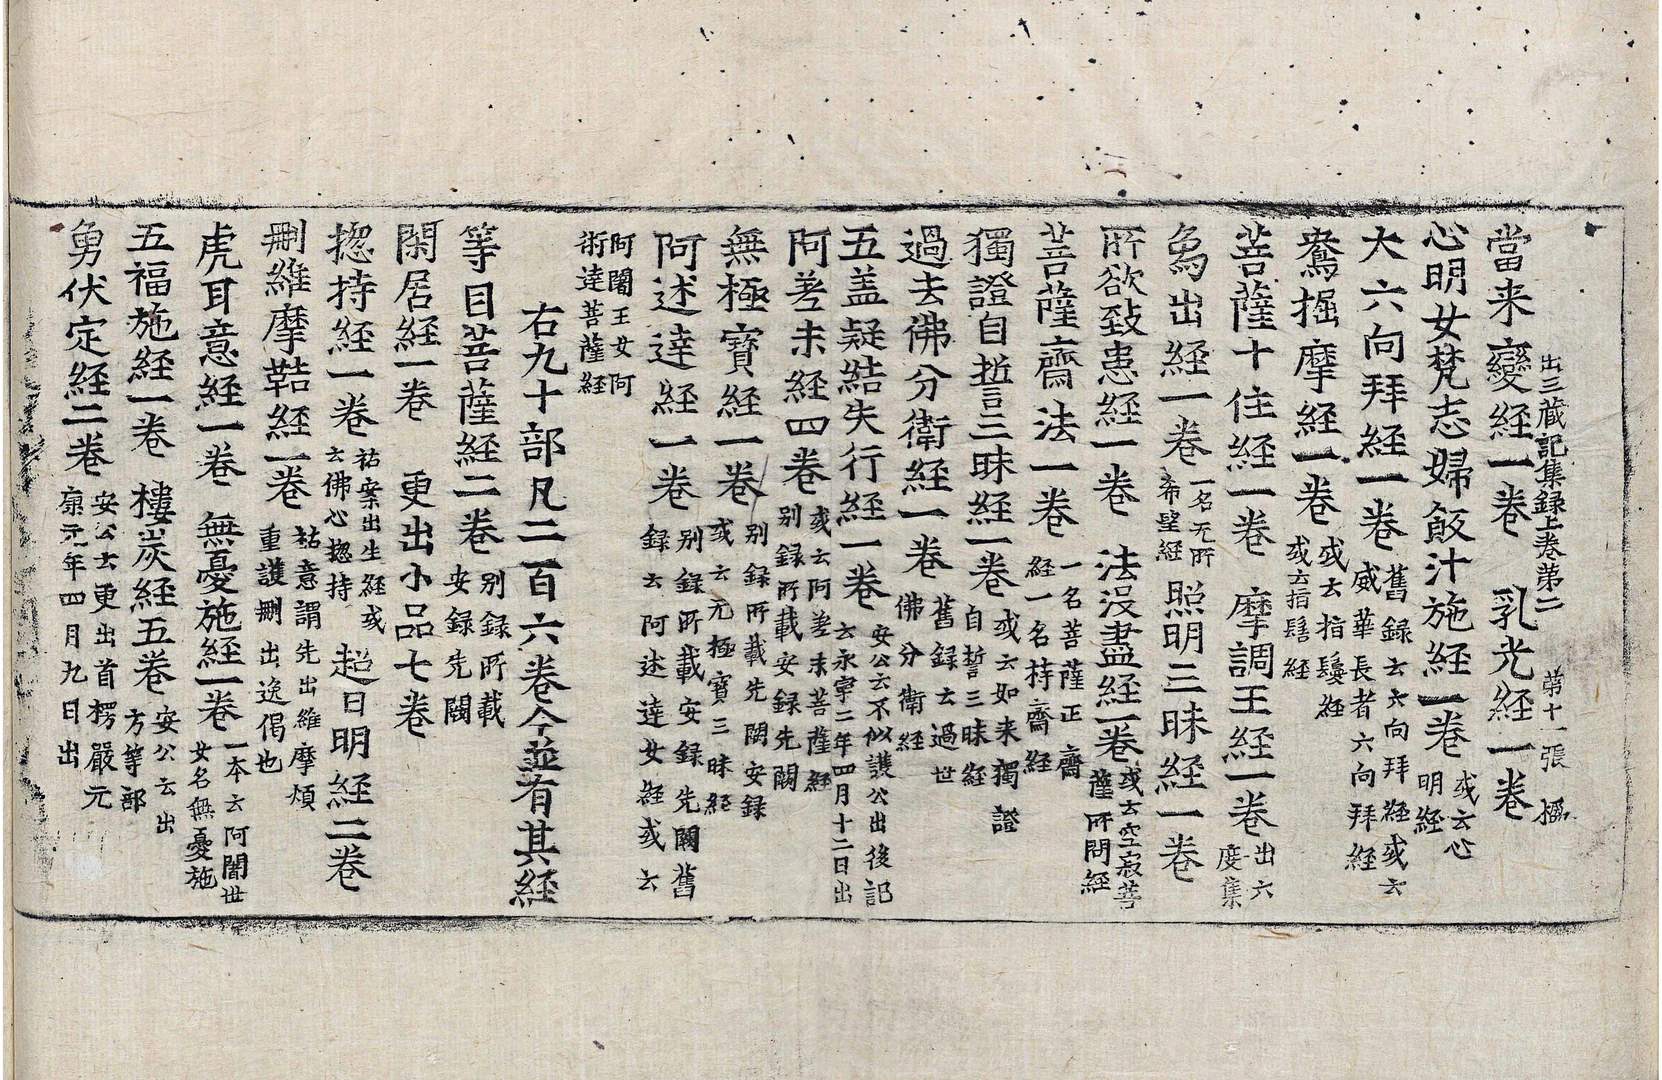 出三藏記集録上卷第二　第十一張
當来變經一卷　乳光經一卷
心明女梵志婦飯汁施經一卷 或云心明經
大六向拜經一卷 舊録云六向拜經或云威華長者六向拜經
鴦掘摩經一卷 或云指鬘經或云指髻經
菩薩十住經一卷　摩調王經一卷 出六度集
象出經一卷 一名无所希望經　照明三昧經一卷
所欲致患經一卷　法没盡經一卷 或云空寂菩薩所問經
菩薩齋法一卷 一名菩薩正齋經一名持齋經
獨證自誓三昧經一卷 或云如来獨證自誓三昧經
過去佛分衛經一卷 舊録云過世佛分衛經
五盖疑結失行經一卷 安公云不似護公出後記云永寧二年四月十二日出
阿差末經四卷 或云阿差末菩薩經别録所載安録先闕
無極寶經一卷 别録所載先闕安録或云无極寶三昧經
阿述達經一卷 别録所載安録先闕舊録云阿述達女經或云
阿闍王女阿術達菩薩經
右九十部凡二百六卷今並有其經
等目菩薩經二卷 别録所載安録先闕
閑居經一卷　更出小品七卷
揔持經一卷 祐案出生經或云佛心揔持　超日明經二卷
刪維摩鞊經一卷 祐意謂先出維摩煩重護刪出逸偈也
虎耳意經一卷　無憂施經一卷 一本云阿闍世女名無憂施
五福施經一卷　樓炭經五卷 安公云出方等部
勇伏定經二卷 安公云更出首楞嚴元康元年四月九日出